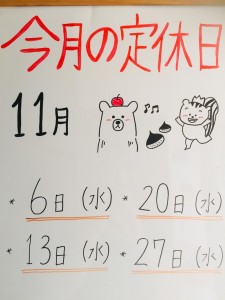 今月の定休日
11月
* 6日(水) * 20日(水)
* 13日(水) * 27日(水)